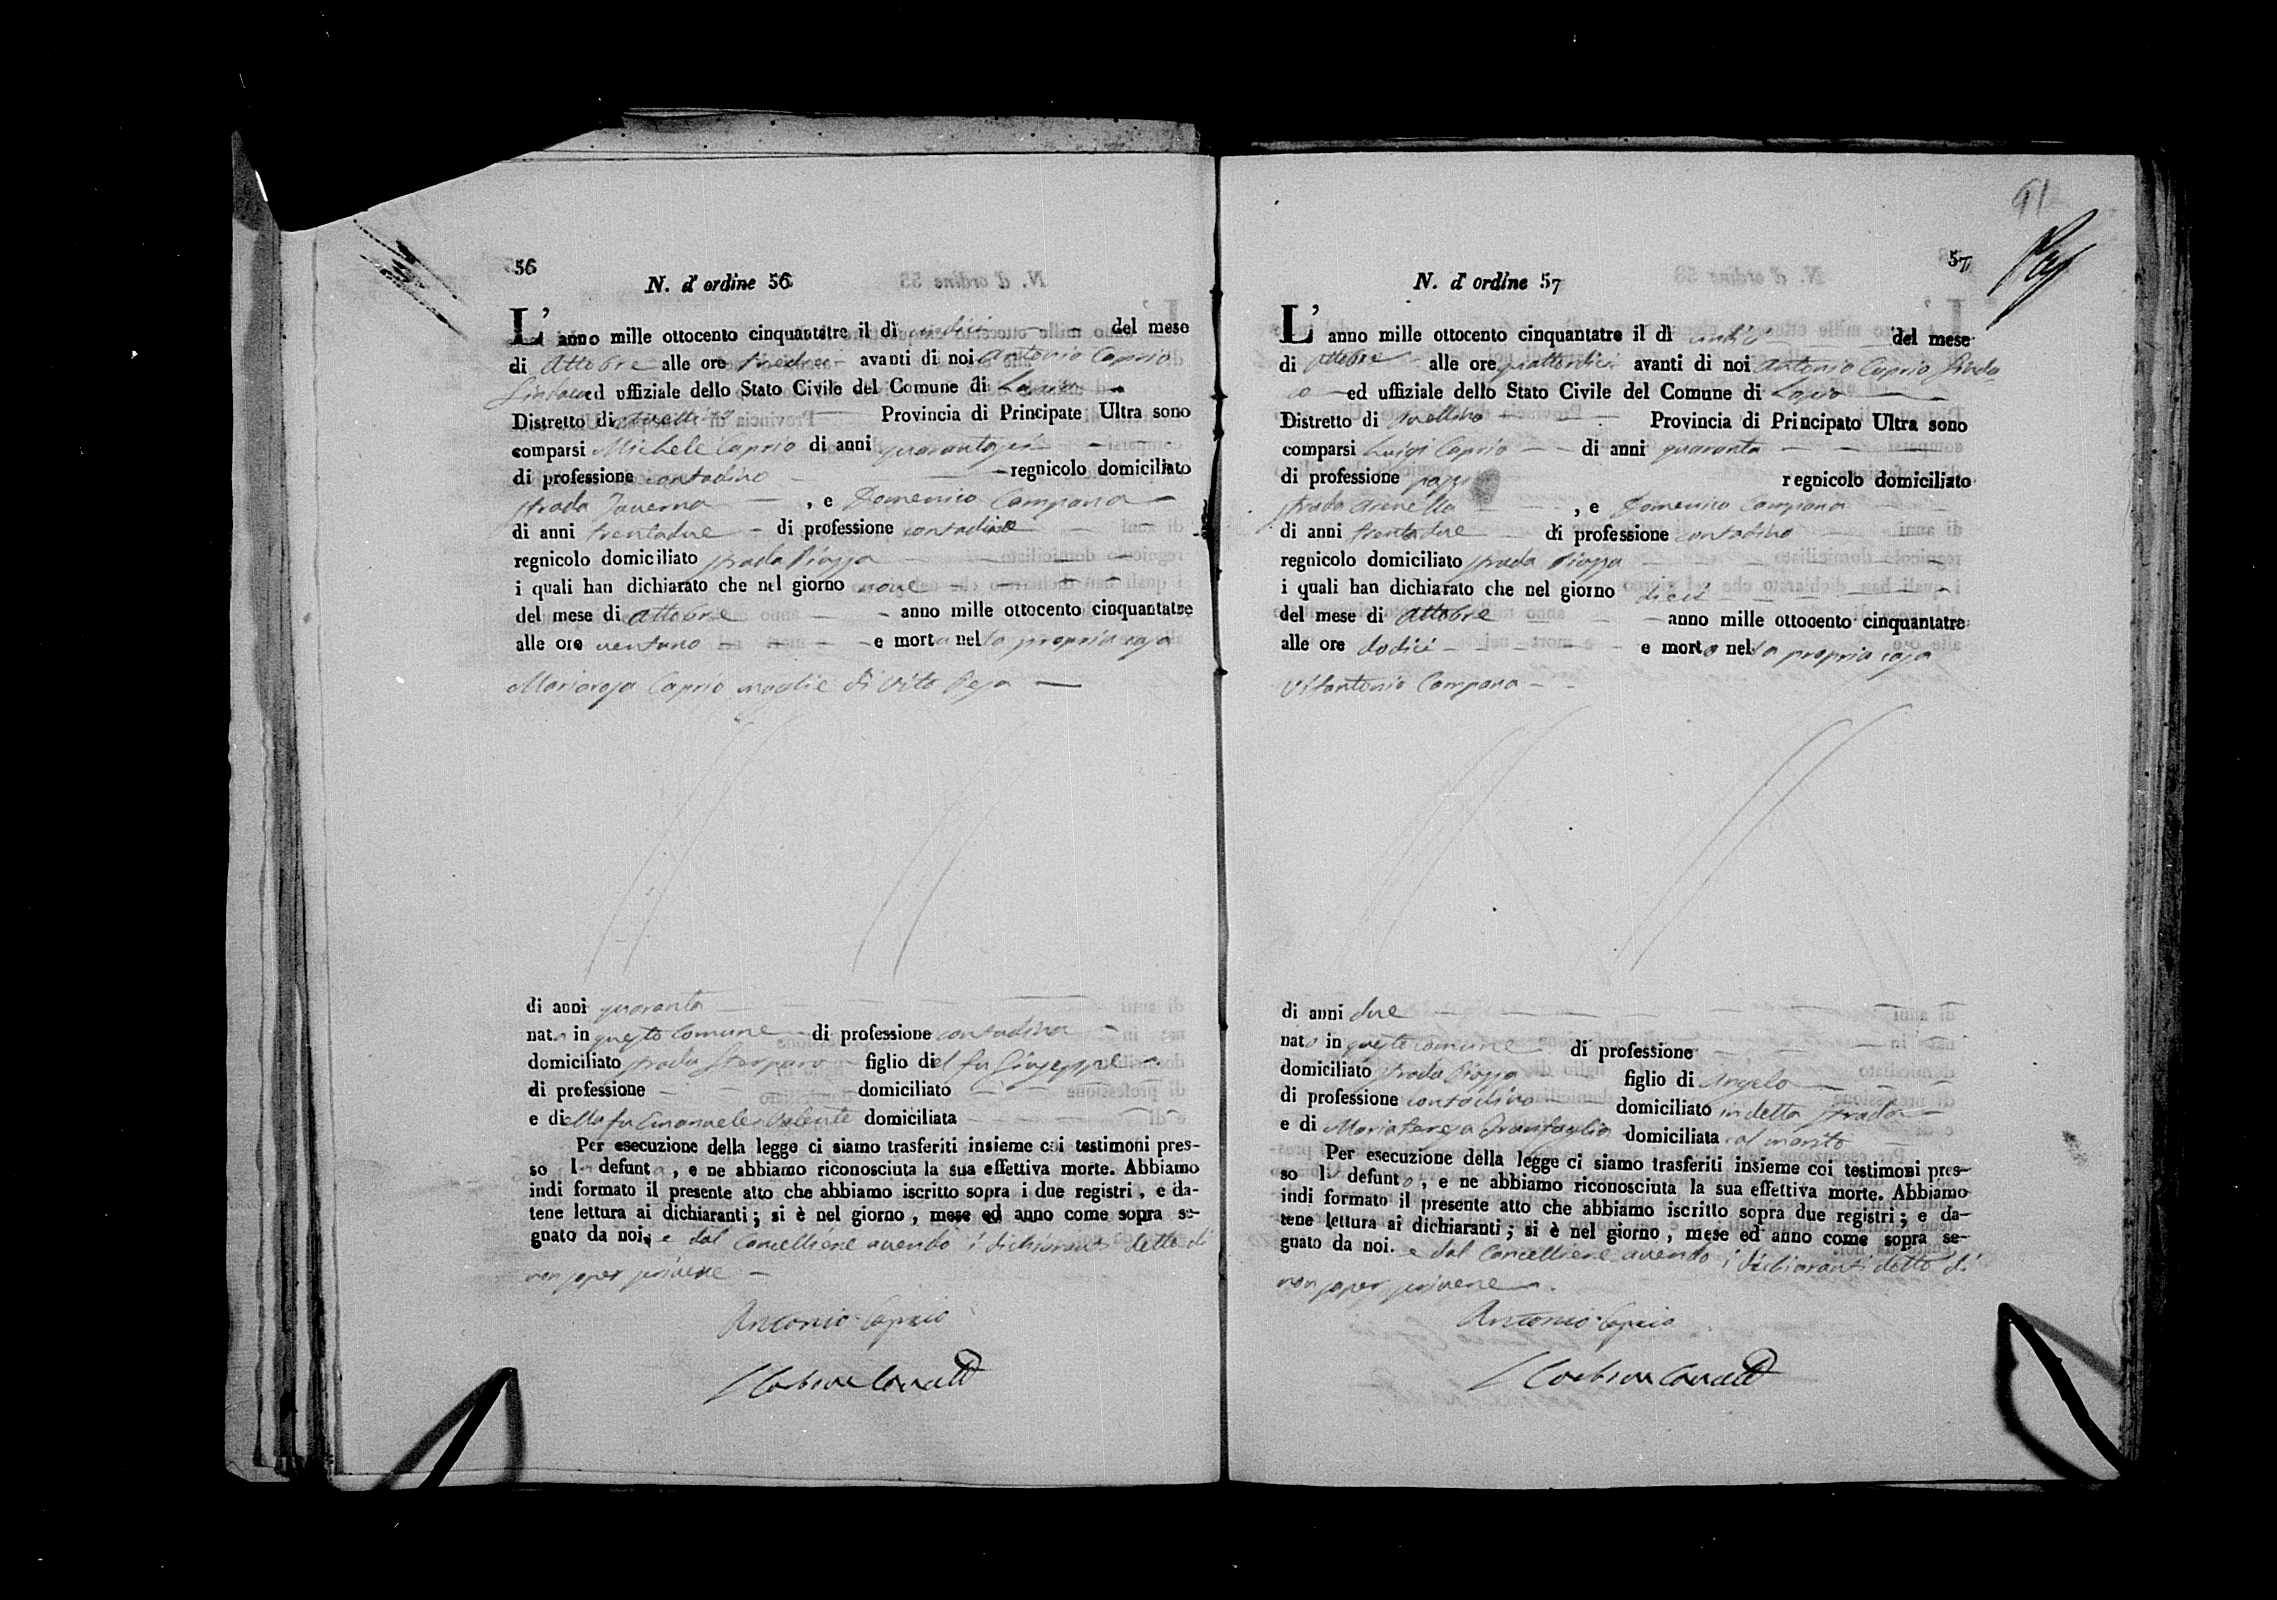 56
N. d' ordine 56
L' anno mille ottocento cinquantatre il dì undici del mese
di Ottobre alle ore tredici avanti di noi Antonio Caprio
Sindaco ed uffiziale dello Stato Civile del Comune di Lapio
Distretto di Avellino Provincia di Principato Ultra sono
comparsi Michele Caprio di anni quarantasei
di professione contadino regnicolo domiciliato
strada Taverna , e Domenico Campana
di anni trentadue di professione contadino
regnicolo domiciliato strada Piazza
i quali han dichiarato che nel giorno nove
del mese di Ottobre anno mille ottocento cinquantatre
alle ore ventuno e morta nella propria casa
Mariarosa Caprio moglie di Vito Pesa
di anni quaranta
nata in questo Comune di professione contadina
domiciliato strada figlio del fu Giuseppe
di professione domiciliato
e della fu Emanuela Valente domiciliata
Per esecuzione della legge ci siamo trasferiti insieme coi testimoni pres-
so la defunta , e ne abbiamo riconosciuta la sua effettiva morte. Abbiamo
indi formato il presente atto che abbiamo iscritto sopra i due registri , e da-
tene lettura ai dichiaranti ; si è nel giorno , mese ed anno come sopra se-
gnato da noi, e dal Cancelliere avendo i dichiaranti detto di
non saper scrivere
Antonio Caprio
91
57
N. d' ordine 57
L' anno mille ottocento cinquantatre il dì undici del mese
di Ottobre alle ore quattordici avanti di noi Antonio Caprio Sinda
co ed uffiziale dello Stato Civile del Comune di Lapio
Distretto di Avellino Provincia di Principato Ultra sono
comparsi Luigi Caprio di anni quaranta
di professione regnicolo domiciliato
strada Arenella , e Domenico Campana
di anni trentadue di professione contadino
regnicolo domiciliato strada Piazza
i quali han dichiarato che nel giorno dieci
del mese di Ottobre anno mille ottocento cinquantatre
alle ore dodici e morto nella propria casa
Vitantonio Campana
di anni due
nato in questo comune di professione
domiciliato strada Piazza figlio di Angelo
di professione contadino domiciliato in detta strada
e di Mariateresa domiciliata col marito
Per esecuzione della legge ci siamo trasferiti insieme coi testimoni pres-
so lo defunto , e ne abbiamo riconosciuta la sua effettiva morte. Abbiamo
indi formato il presente atto che abbiamo iscritto sopra due registri ; e da-
tene lettura ai dichiaranti ; si è nel giorno , mese ed anno come sopra se-
gnato da noi. e dal Cancelliere avendo i dichiaranti detto di
non saper scrivere
Antonio Caprio